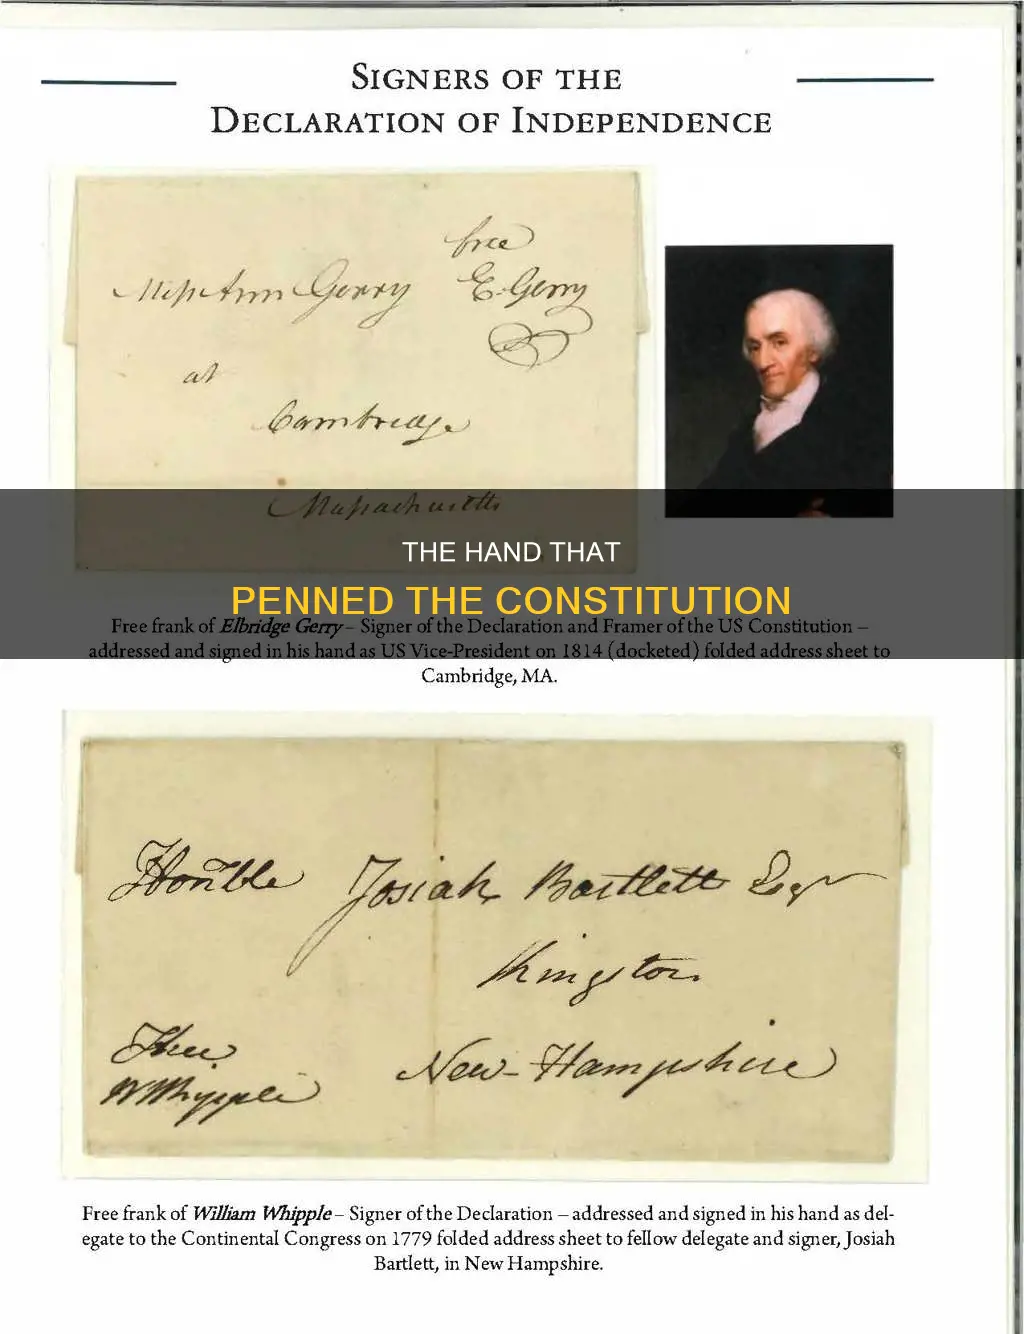 SIGNERS OF THE
DECLARATION OF INDEPENDENCE
free
Miss Ann Gerry E. Gerry
at
Cambridge
Massachusetts
THE HAND THAT
PENNED THE CONSTITUTION
Free frank of Elbridge Gerry – Signer of the Declaration and Framer of the US Constitution –
addressed and signed in his hand as US Vice-President on 1814 (docketed) folded address sheet to
Cambridge, MA.
Honble Josiah Bartlett Esqr
Kingston
New-Hampshire
Free
Wm Whipple
Free frank of William Whipple – Signer of the Declaration – addressed and signed in his hand as del-
egate to the Continental Congress on 1779 folded address sheet to fellow delegate and signer, Josiah
Bartlett, in New Hampshire.